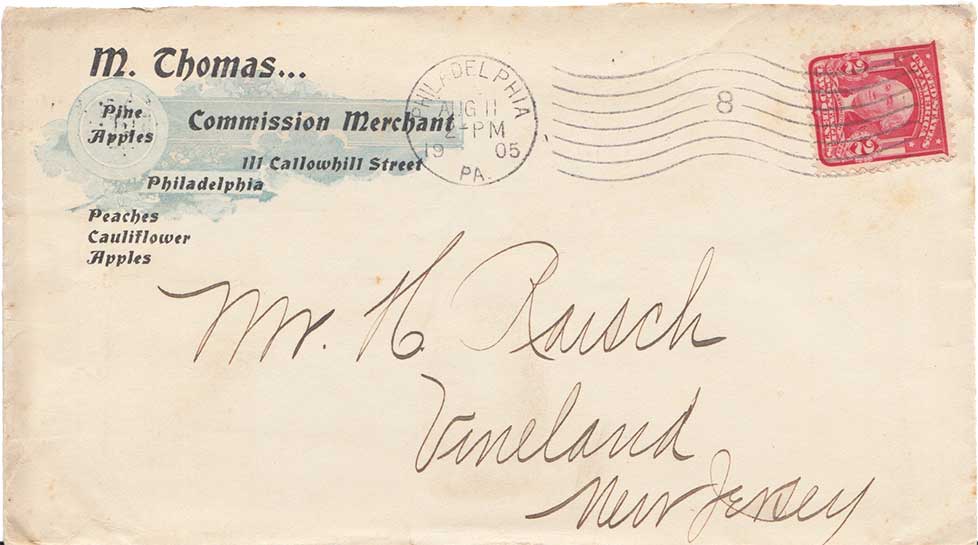 M. Thomas...
Pine
Apples
Commission Merchant
111 Callowhill Street
Philadelphia
Peaches
Cauliflower
Apples
PHILADELPHIA
AUG 11
2-PM
19 05
PA.
8
2 2
Mr. H Rausch
Vineland
New Jersey